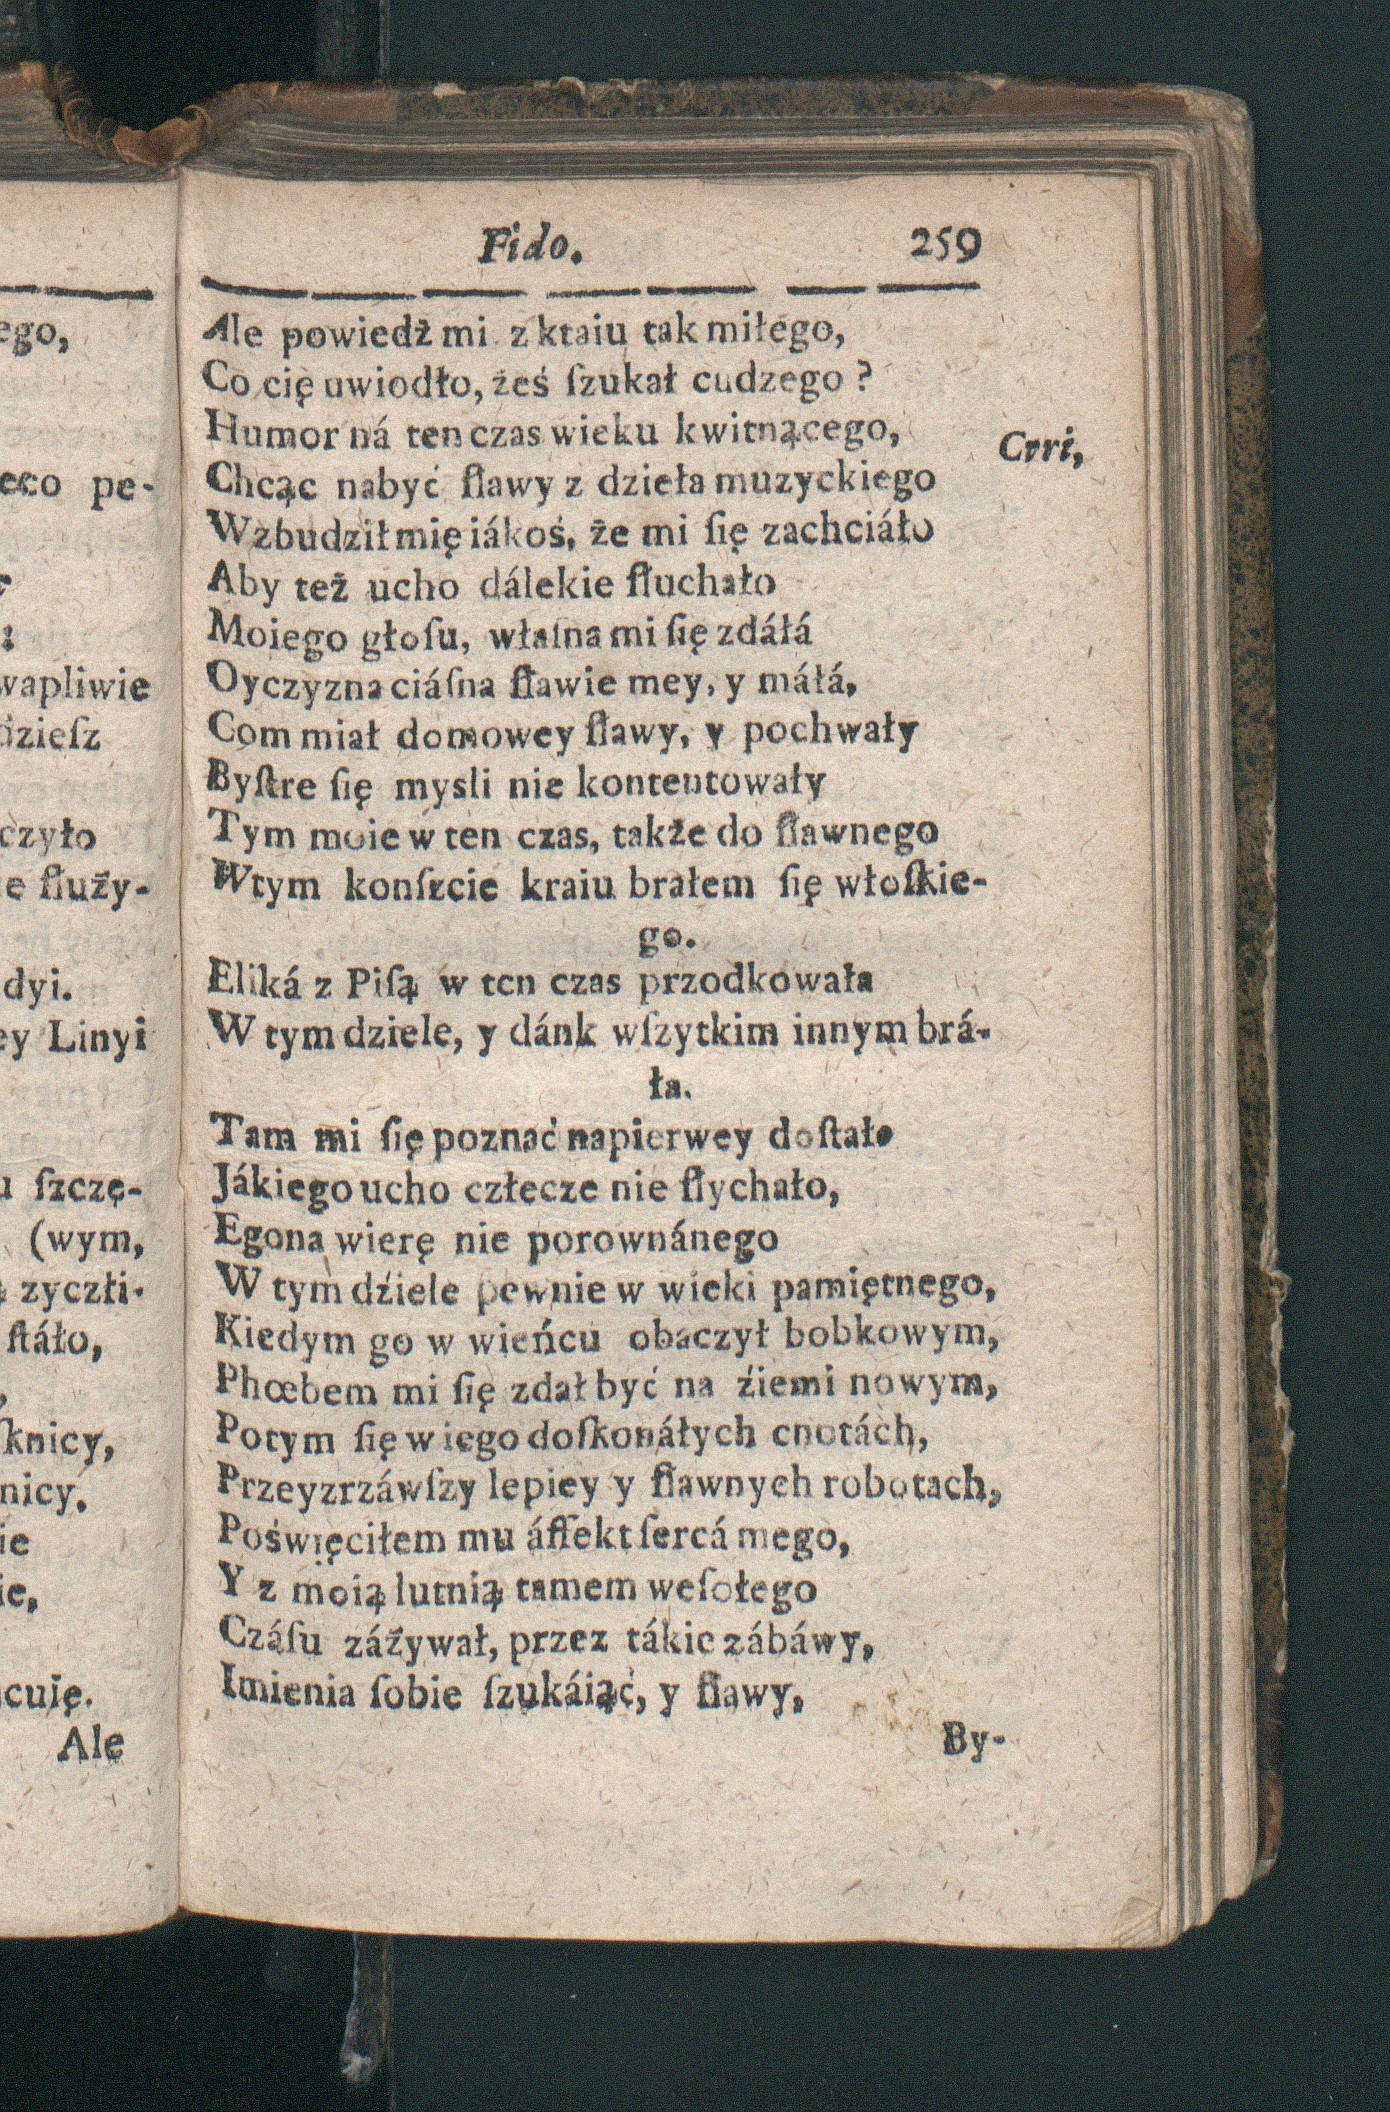 ego,
eco pe-
wapliwie
dzieſz
czyło
e ſłuży-
dyi.
ey Linyi
u ſzczę-
(wym,
zyczłi-
ſtáło,
ſknicy,
nicy.
ie
ie,
cuię.
Ale
Fido. 259
Ale powiedż mi z ktaiu tak miłego,
Co cię uwiodło, żeś ſzukał cudzego ?
Humor ná ten czas wieku kwitnącego,
Crri,
Chcąc nabyć ſławy z dzieła muzyckiego
Wzbudził mię iákoś, że mi ſię zachciáło
Aby też ucho dálekie ſłuchało
Moiego głoſu, właſna mi ſię zdáłá
Oyczyzna ciáſna ſławie mey, y máłá,
Com miał domowey ſławy, y pochwały
Byſtre ſię mysli nie kontentowały
Tym moie w ten czas, także do ſławnego
Wtym konſzcie kraiu brałem ſię włoſkie-
go.
Eliká z Piſą w ten czas przodkowała
W tym dziele, y dánk wſzytkim innym brá-
ła.
Tam mi ſię poznać napierwey doſtało
Jákiego ucho człecze nie ſłychało,
Egona wierę nie porownánego
W tym dźiele pewnie w wieki pamiętnego,
Kiedym go w wieńcu obaczył bobkowym,
Phœbem mi ſię zdał być na źiemi nowym,
Potym ſię w iego doſkonáłych cnotách,
Przeyzrzáwſzy lepiey y ſławnych robotach,
Poświęciłem mu áffekt ſercá mego,
Y z moią lutnią tamem weſołego
Czáſu záżywał, przez tákie zábáwy,
Imienia ſobie ſzukáiąć, y ſławy,
By-